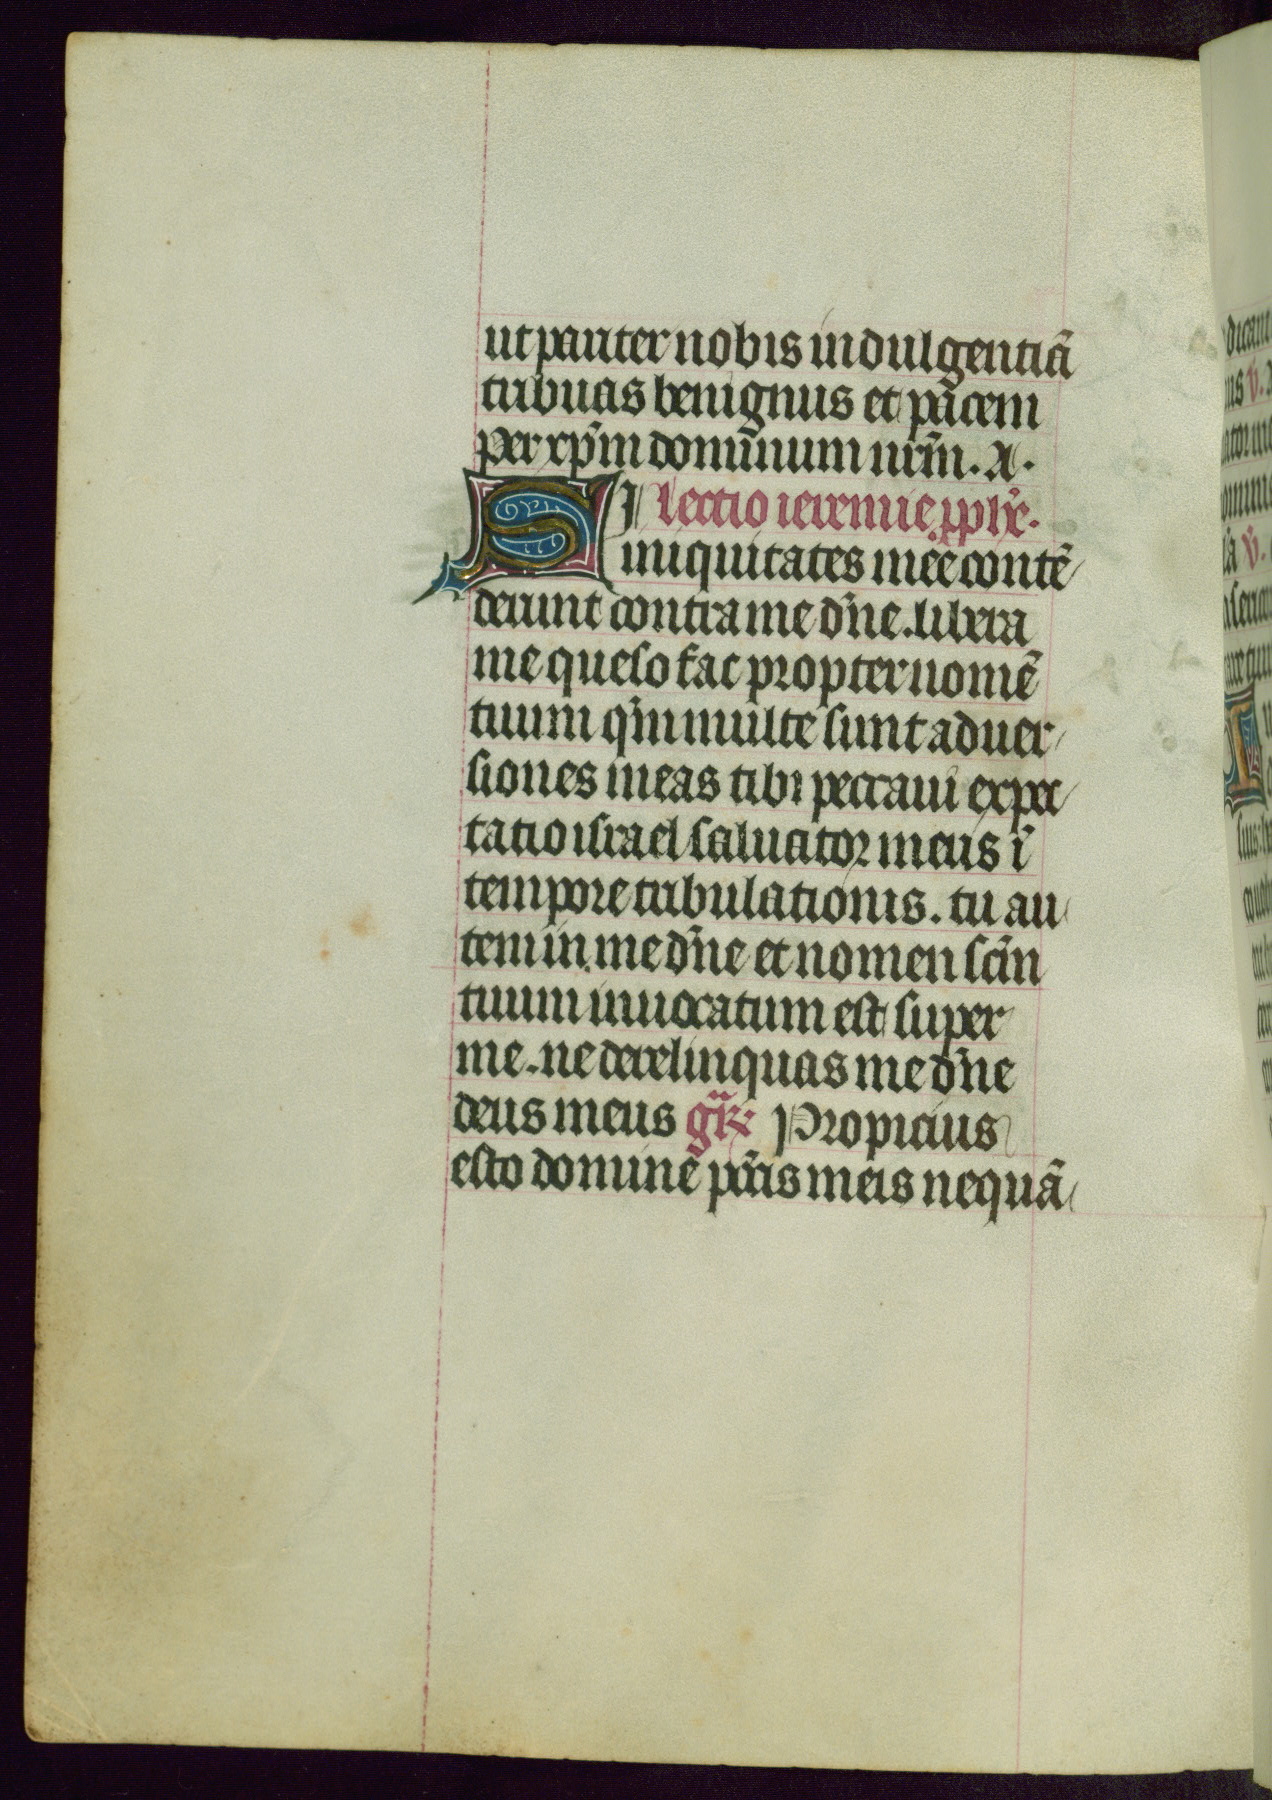 ut pariter nobis indulgentiã
tribuas benignus et pacem
per xpm̃ dominum nrm̃. A.
SI lectio ieremie pphe.
iniquitates mee contẽ
derunt contra me dñe. libera
me queso fac propter nomẽ
tuum qm̃ multe sunt aduer
siones meas tibi peccaui expec
tatio israel saluator meus ĩ
tempore tribulationis. tu au
tem in me dñe et nomen scm̃
tuum inuocatum est super
me. ne derelinquas me dñe
deus meus gr̃. Propicius
esto domine pctis̃ meis nequã